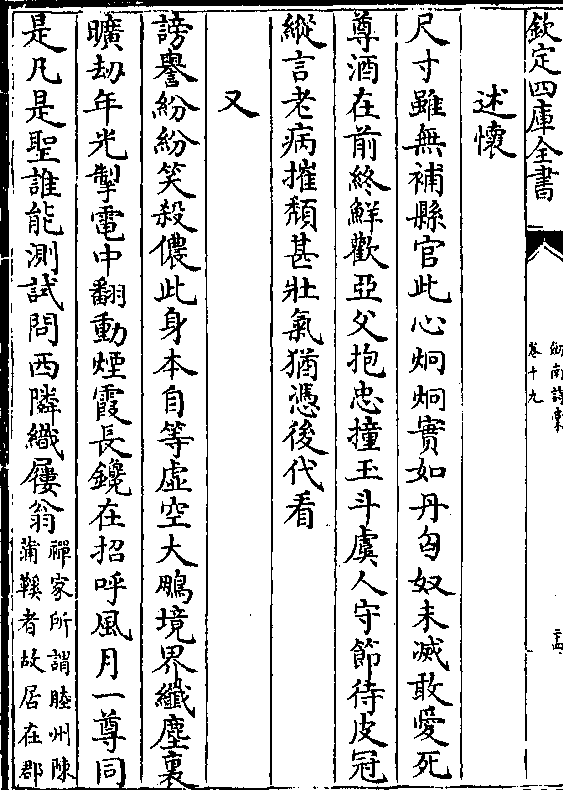 欽定四庫全書
劍南詩稾
卷十九
述懷
尺寸雖無補縣官此心炯炯實如丹匈奴未滅敢愛死
尊酒在前終鮮歡亞父抱忠撞玉斗虞人守節待皮冠
縱言老病摧頽甚壯氣猶憑後代看
又
謗譽紛紛笑殺儂此身本自等虛空大鵬境界纖塵裏
曠劫年光掣電中翻動煙霞長鑱在招呼風月一尊同
是凡是聖誰能測試問西隣織屨翁
禪家所謂睦州陳
蒲鞵者故居在郡